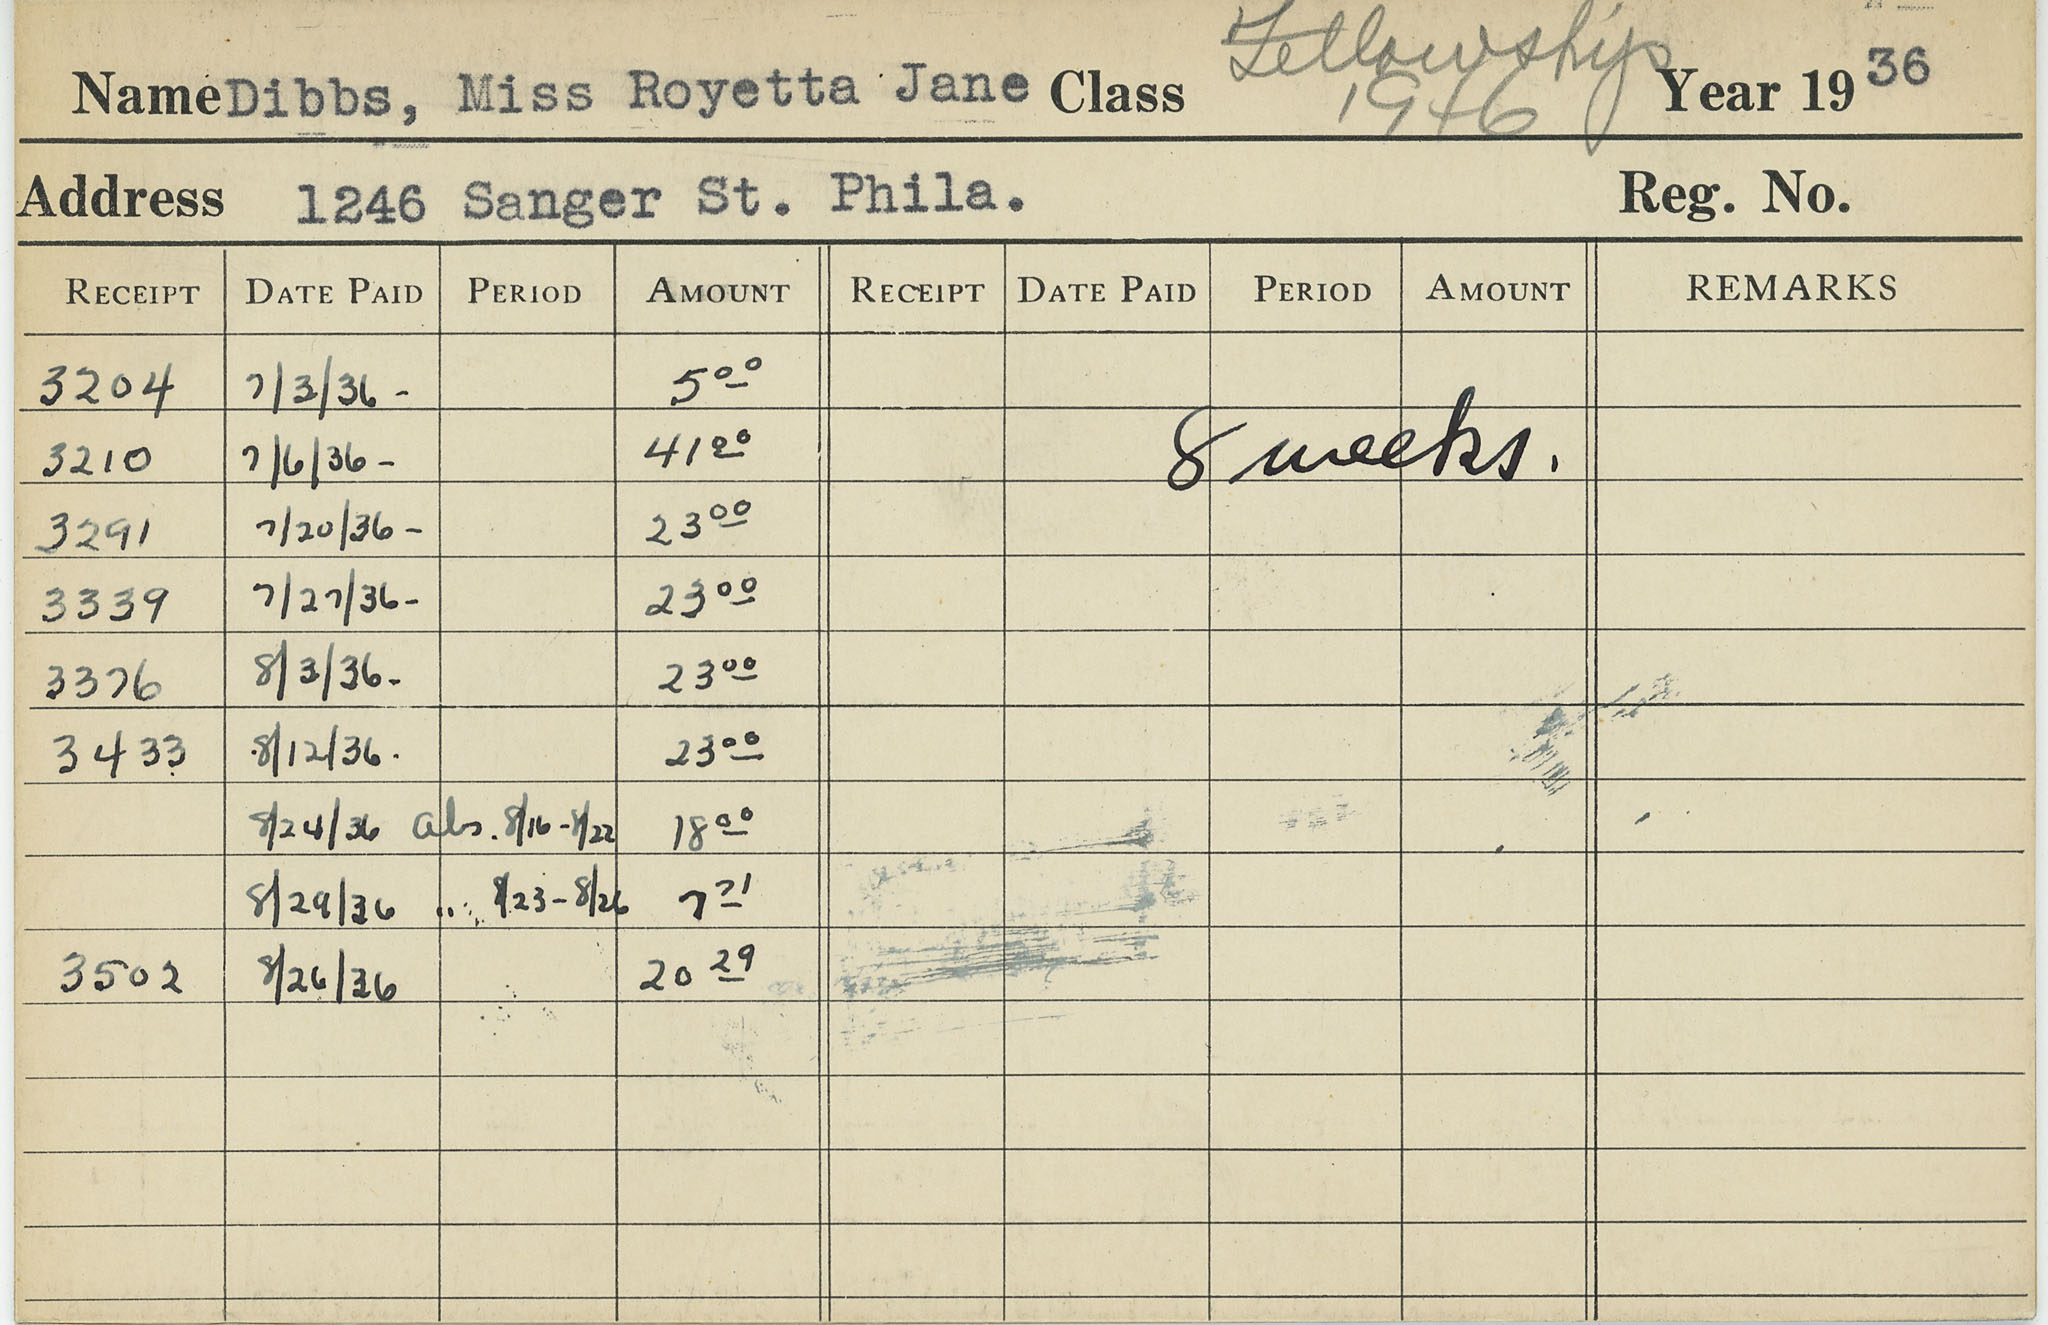 Fellowship
Name Dibbs, Miss Royetta Jane Class 1946 Year 19 36
Address 1246 Sanger St. Phila. Reg. No.
RECEIPT DATE PAID PERIOD AMOUNT RECEIPT DATE PAID PERIOD AMOUNT REMARKS
3204 7/3/36- 5 00
3210 7/6/36- 41 00 8 weeks.
3291 7/20/36- 23 00
3339 7/27/36- 23 00
3376 8/3/36- 23 00
3433 8/12/36. 23 00
8/24/36 abs. 8/16-8/22 18 00
8/29/36 " 8/23-8/26 7 71
3502 8/26/36 20 29